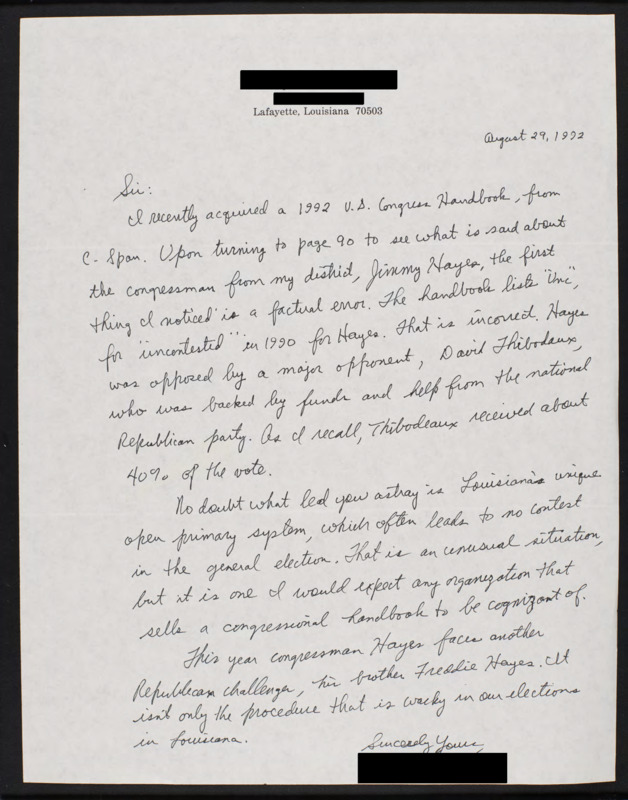 Lafayette, Louisiana 70503
August 29, 1992
Sir:
I recently acquired a 1992 U.S. Congress Handbook, from
C-Span. Upon turning to page 90 to see what is said about
the congressman from my district, Jimmy Hayes, the first
thing I noticed is a factual error. The handbook lists "Unc",
for "uncontested" in 1990 for Hayes. That is incorrect. Hayes
was opposed by a major opponent, David Thibodaux,
who was backed by funds and help from the national
Republican party. As I recall, Thibodeaux received about
40% of the vote.
No doubt what led you astray is Louisiana's unique
open primary system, which often leads to no contest
in the general election. That is an unusual situation,
but it is one I would expect any organization that
sells a congressional handbook to be cognizant of.
This year congressman Hayes faces another
Republican challenger, his brother Freddie Hayes. It
isn't only the procedure that is wacky in our elections
in Louisiana.
Sincerely Yours,